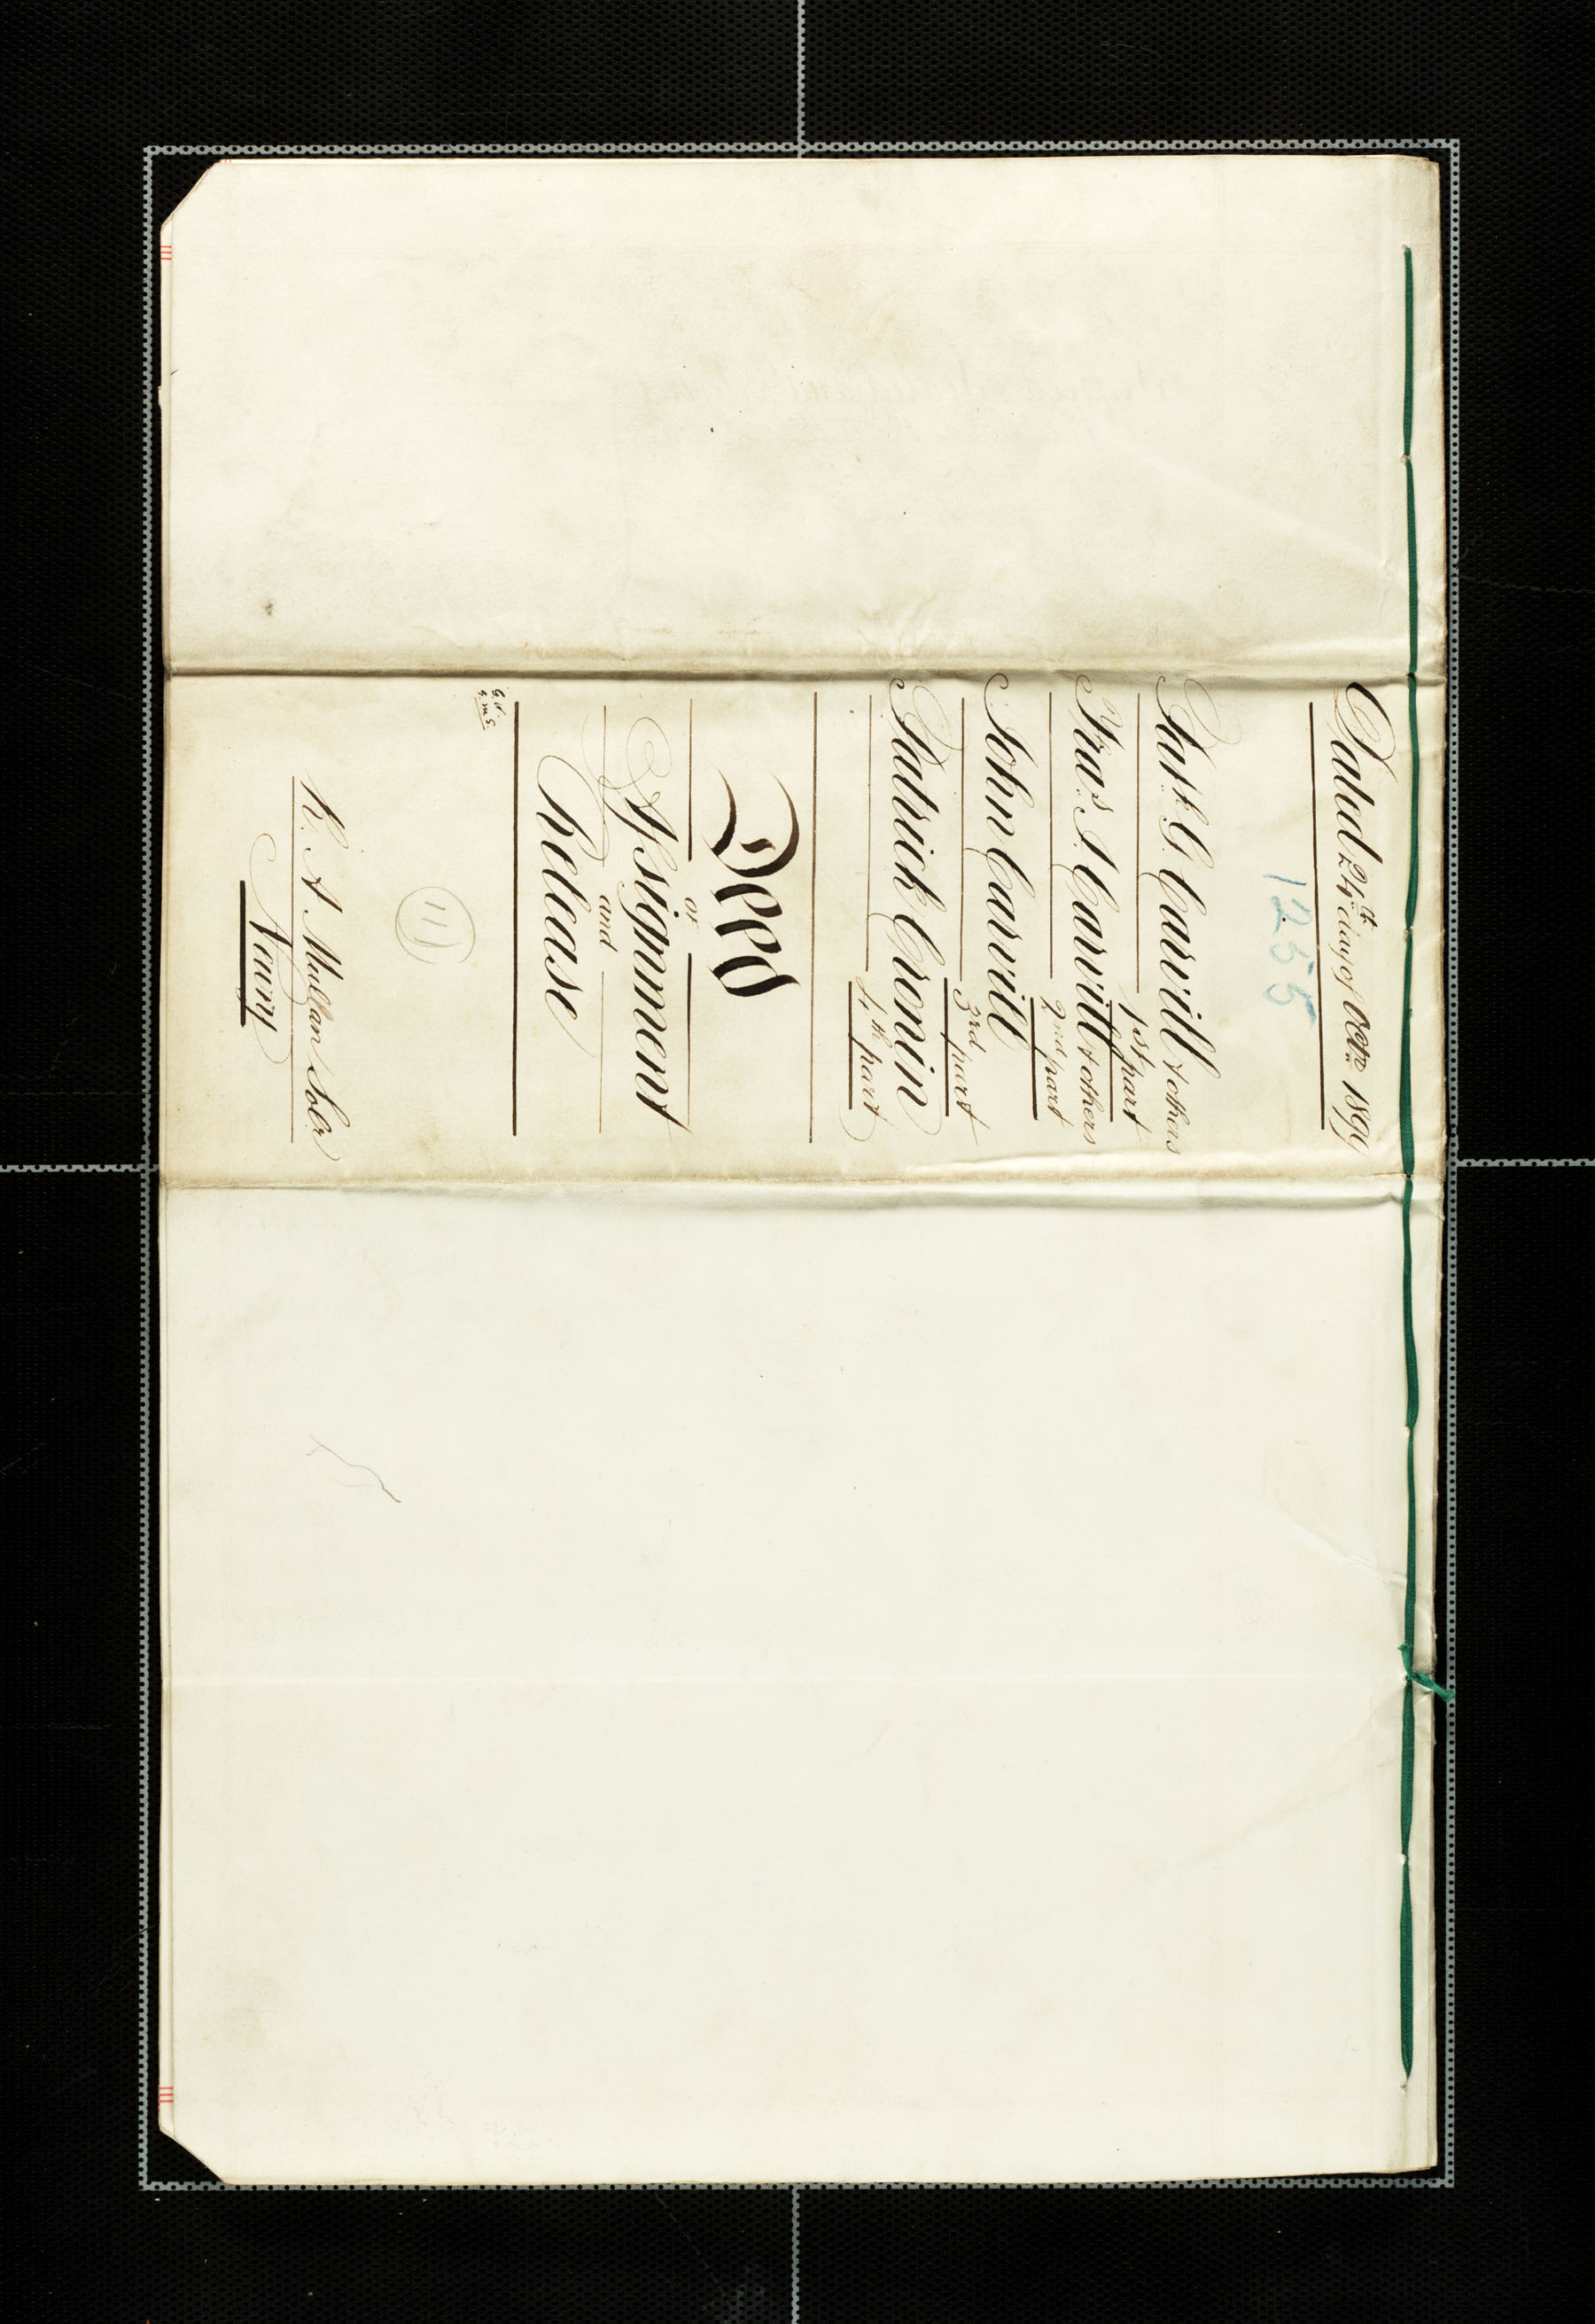 Dated 24th day of Octr. 1899
1255
Patk. G. Carvill & others
1st part
Fras. J. Carvill & others
2nd part
John Carvill
3rd part
Patrick Cronin
4th part
Deed
of
Assignment
and
Release
11
Mullan Solr
Newry